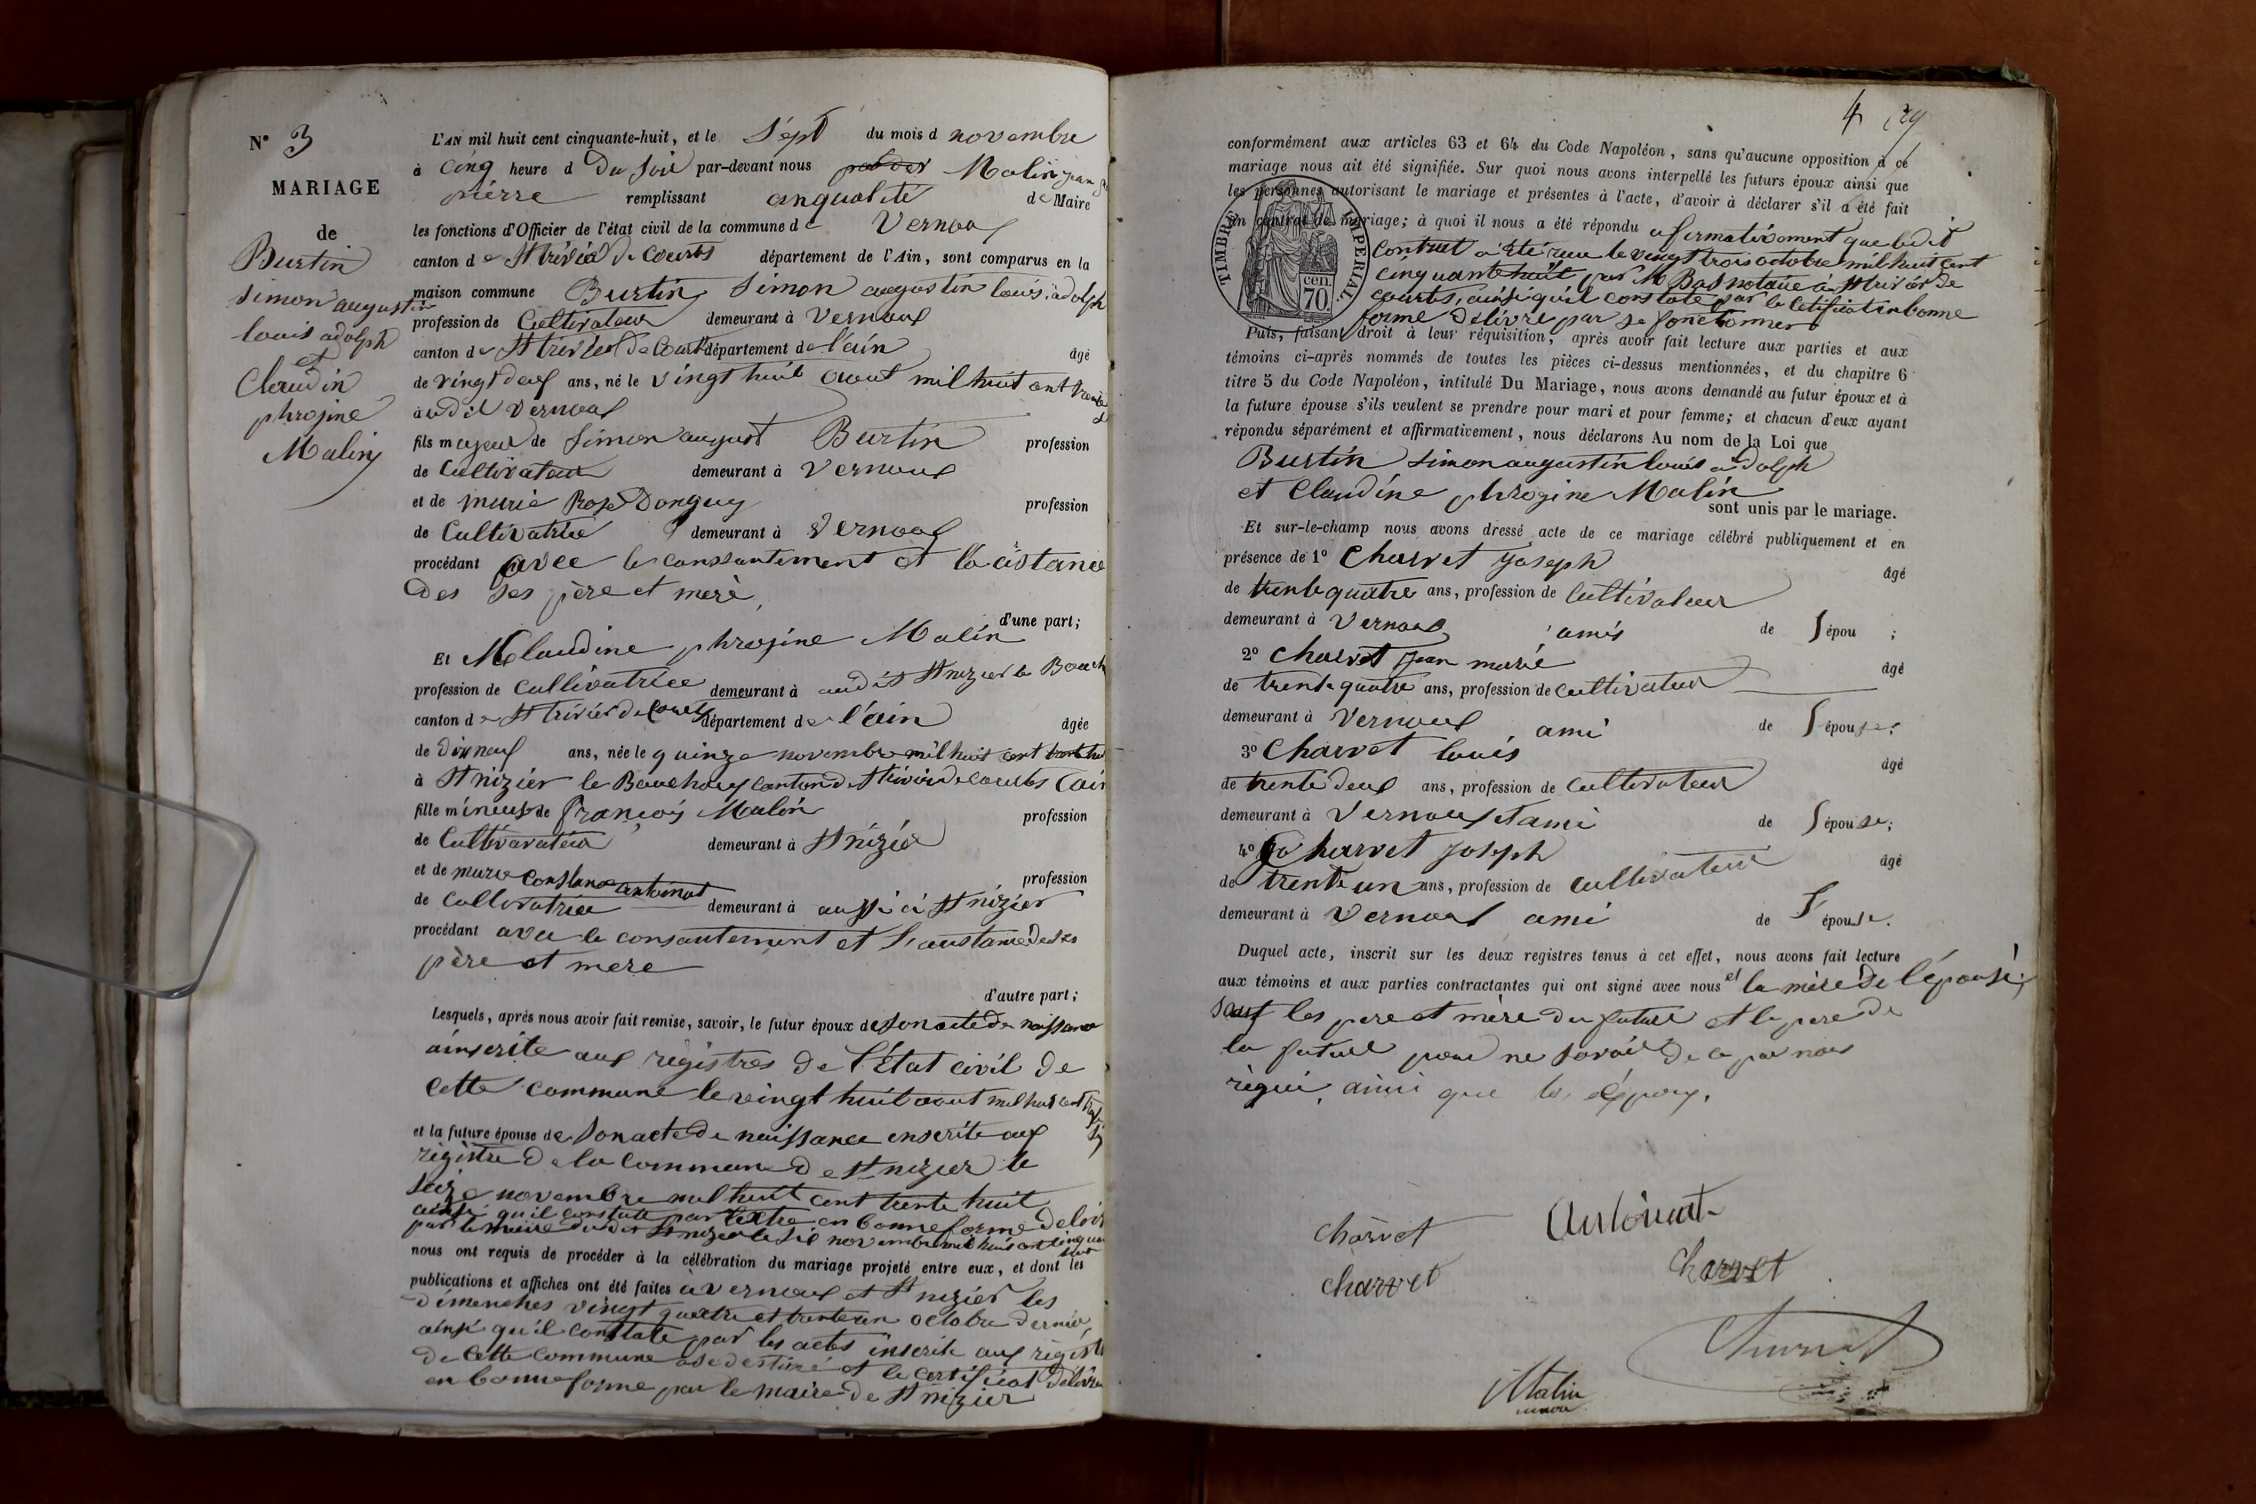 N° 3
MARIAGE
de
Burtin
Simon augustin
louis adolph
et
Claudin
phrosine
Malin
L'AN mil huit cent cinquante-huit, et le Sept du mois d novembre
à Cinq heure d Du Soir par-devant nous Malin jean
pierre remplissant anqualité de Maire
les fonctions d'Officier de l'état civil de la commune de Vernoux
canton de St trivier de Courts département de l'Ain, sont comparus en la
maison commune Burtin Simon augustin louis adolph
profession de Cultivateur demeurant à Vernoux
canton de St trivier de Court département de l'ain âgé
de vingt deux ans, né le vingt huit aout mil huit cent trente
à udit Vernoux
fils majeur de Simon august Burtin profession
de Cultivateur demeurant à Vernoux
et de marie Rose Donguy profession
de Cultivatrice demeurant à Vernoux
procédant avec le conssantement et l'acistance
des ses père et mère,
d'une part;
Et Claudine phrosine Malin
profession de cultivatrice demeurant à audit St nizier le Bouch
canton de St trivier de Courts département de l'ain âgée
de dixneuf ans, née le quinze novembre mil huit cent trente hui
à St nizier le Bouchoux canton de St trivier de courtes l'ain
fille mineur de françois Malin profession
de Cultivavateur demeurant à St nizier
et de marie Constance antoinat profession
de Cultivatrice demeurant à aussi à St nizier
procédant avec le consantement et l'austance de ses
père et mere
d'autre part;
Lesquels, après nous avoir fait remise, savoir, le futur époux de son acte de naissance
ainscrite aux règistres de l'État civil de
Cette commune le vingt huit aout mil huit cent trente
six
et la future épouse de son acte de naissance enscrite aux
règistre De la Commune De St nizier le
seize novembre mil huit cent trente huit
ainsi qu'il constate par l'extre en bonne forme Delivr
par le maire dudit St nizier le six novembre mil huit cent cinquante
huit
nous ont requis de procéder à la célébration du mariage projeté entre eux, et dont les
publications et affiches ont été faites à Vernoux et St nizier les
dimenches vingt quatre et trente un octobre dernier,
ainsi qu'il constate par les actes inscrite aux registr
de cette commune a se destiné et le certificat délivré
en bonne forme par le maire de St nizier
4
conformément aux articles 63 et 64 du Code Napoléon, sans qu'aucune opposition à ce
mariage nous ait été signifiée. Sur quoi nous avons interpellé les futurs époux ainsi que
les personnes autorisant le mariage et présentes à l'acte, d'avoir à déclarer s'il a été fait
un contrat de mariage; à quoi il nous a été répondu afirmativement que ledit
TIMBRE IMPÉRIAL.
cen. 70.
Contrat a été reçu le vingt trois octobre mil huit cent
cinquante huit par M Bad notaire à St trivier de
courts, ainsi qu'il constate par le cetificat in bonne
forme Délivré par se fonctionner
Puis, faisant droit à leur réquisition, après avoir fait lecture aux parties et aux
témoins ci-après nommés de toutes les pièces ci-dessus mentionnées, et du chapitre 6
titre 5 du Code Napoléon, intitulé Du Mariage, nous avons demandé au futur époux et à
la future épouse s'ils veulent se prendre pour mari et pour femme; et chacun d'eux ayant
répondu séparément et affirmativement, nous déclarons Au nom de la Loi que
Burtin Simon augustin louis adolph
et Claudine phrosine Malin
sont unis par le mariage.
Et sur-le-champ nous avons dressé acte de ce mariage célébré publiquement et en
présence de 1° Charvet Joseph âgé
de trente quatre ans, profession de Cultivateur
demeurant à Vernoux amis de l'épou ;
2° Charvet Jean marie âgé
de trente quatre ans, profession de cultivateur
demeurant à Vernoux ami de l'épouse;
3° Charvet louis âgé
de trente deux ans, profession de Cultivateur
demeurant à Vernoux et ami de l'épouse;
4° Charvet Joseph âgé
de trente un ans, profession de cultivateur
demeurant à Vernoux ami de l'épouse.
Duquel acte, inscrit sur les deux registres tenus à cet effet, nous avons fait lecture
aux témoins et aux parties contractantes qui ont signé avec nous et la mère De l'épouse,
sauf les pere et mère du future et le pere De
la future pour ne savoir De ce par nous
règui, ainsi que les époux.
Charvet
Antoinat
Charvet
Charvet
Malin
maire